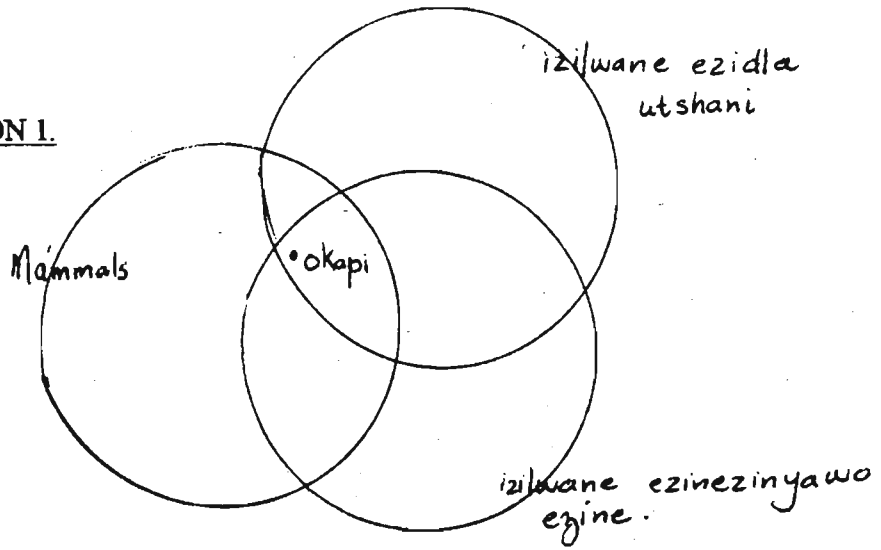 izilwane ezidla
utshani
ON 1.
Mammals
okapi
izilwane ezinezinyawo
ezine.